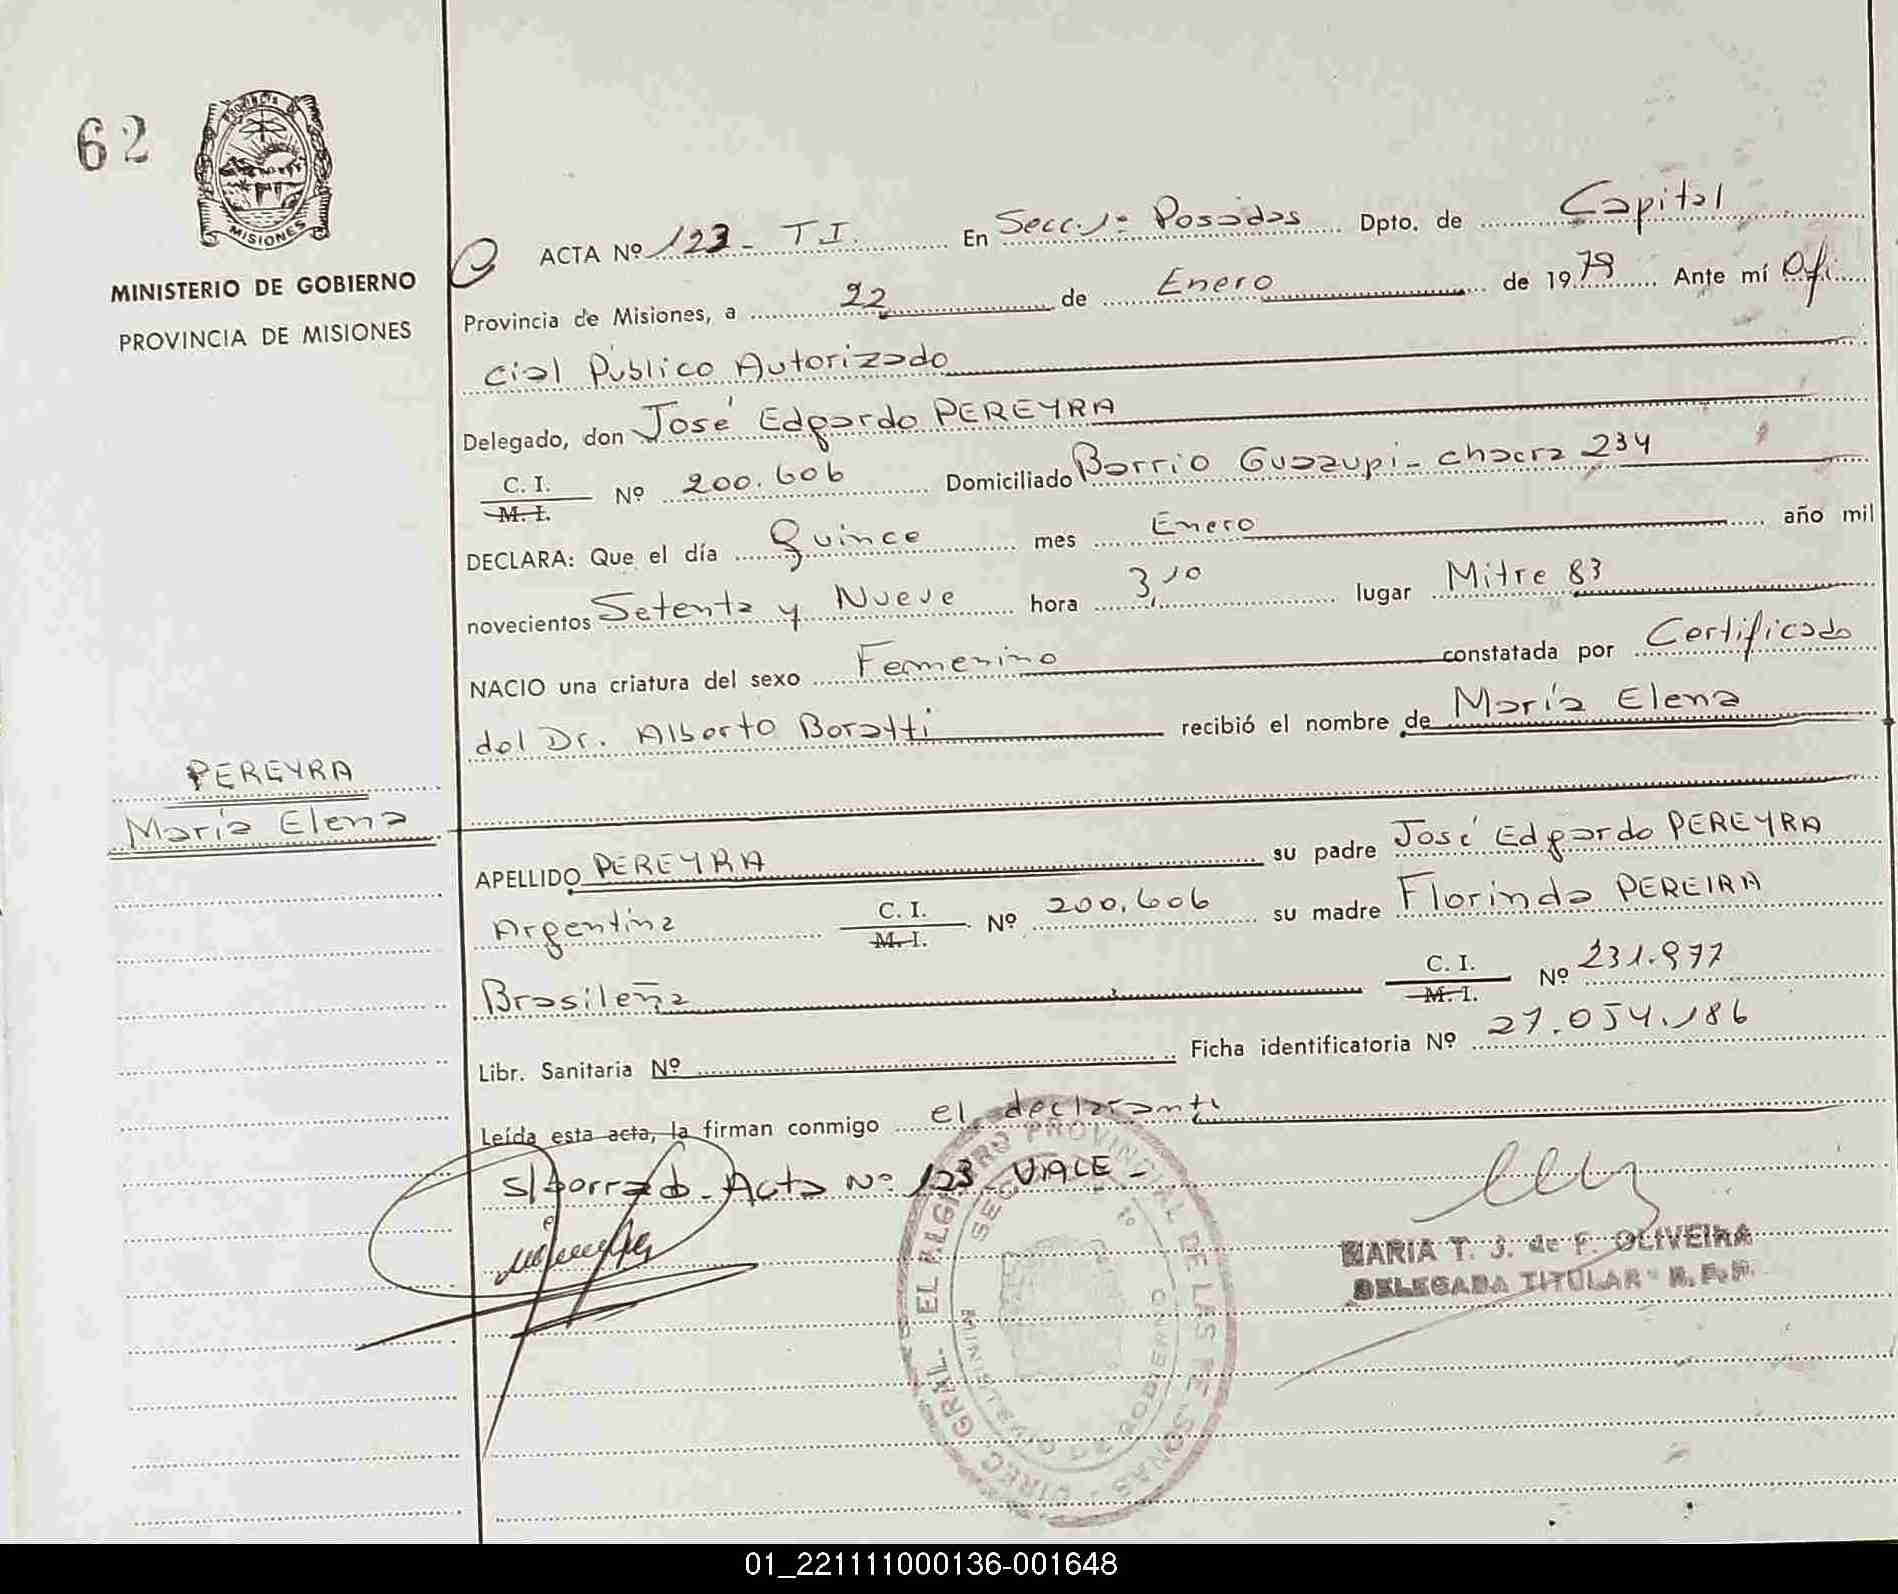 62
MISIONES
MINISTERIO DE GOBIERNO
PROVINCIA DE MISIONES
ACTA Nº 123 - T I. En Secc. 1ª Posadas Dpto. de Capital
Provincia de Misiones, a 22 de Enero de 1979 Ante mí Ofi
cial Público Autorizado
Delegado, don José Edgardo PEREYRA
C. I. M. I. Nº 200.606 Domiciliado Barrio Guazupi - chacra 234
DECLARA: Que el día Quince mes Enero año mil
novecientos Setenta y Nueve hora 3,10 lugar Mitre 83
NACIO una criatura del sexo Femenino constatada por Certificado
del Dr. Alberto Boratti recibió el nombre de María Elena
PEREYRA
María Elena
APELLIDO PEREYRA su padre José Edgardo PEREYRA
Argentina C. I. M. I. Nº 200.606 su madre Florinda PEREIRA
Brasileña C. I. M. I. Nº 231.977
Libr. Sanitaria Nº Ficha identificatoria Nº 27.054.186
Leída esta acta, la firman conmigo el declarante
S/borrado - Acta Nº 123 VALE -
MARIA T. J. de F. OLIVEIRA
DELEGADA TITULAR R. P. P.
PROVINCIAL DE LAS PERSONAS - DIREC. GRAL. EL
MINIST. GOBIERNO
01_221111000136-001648